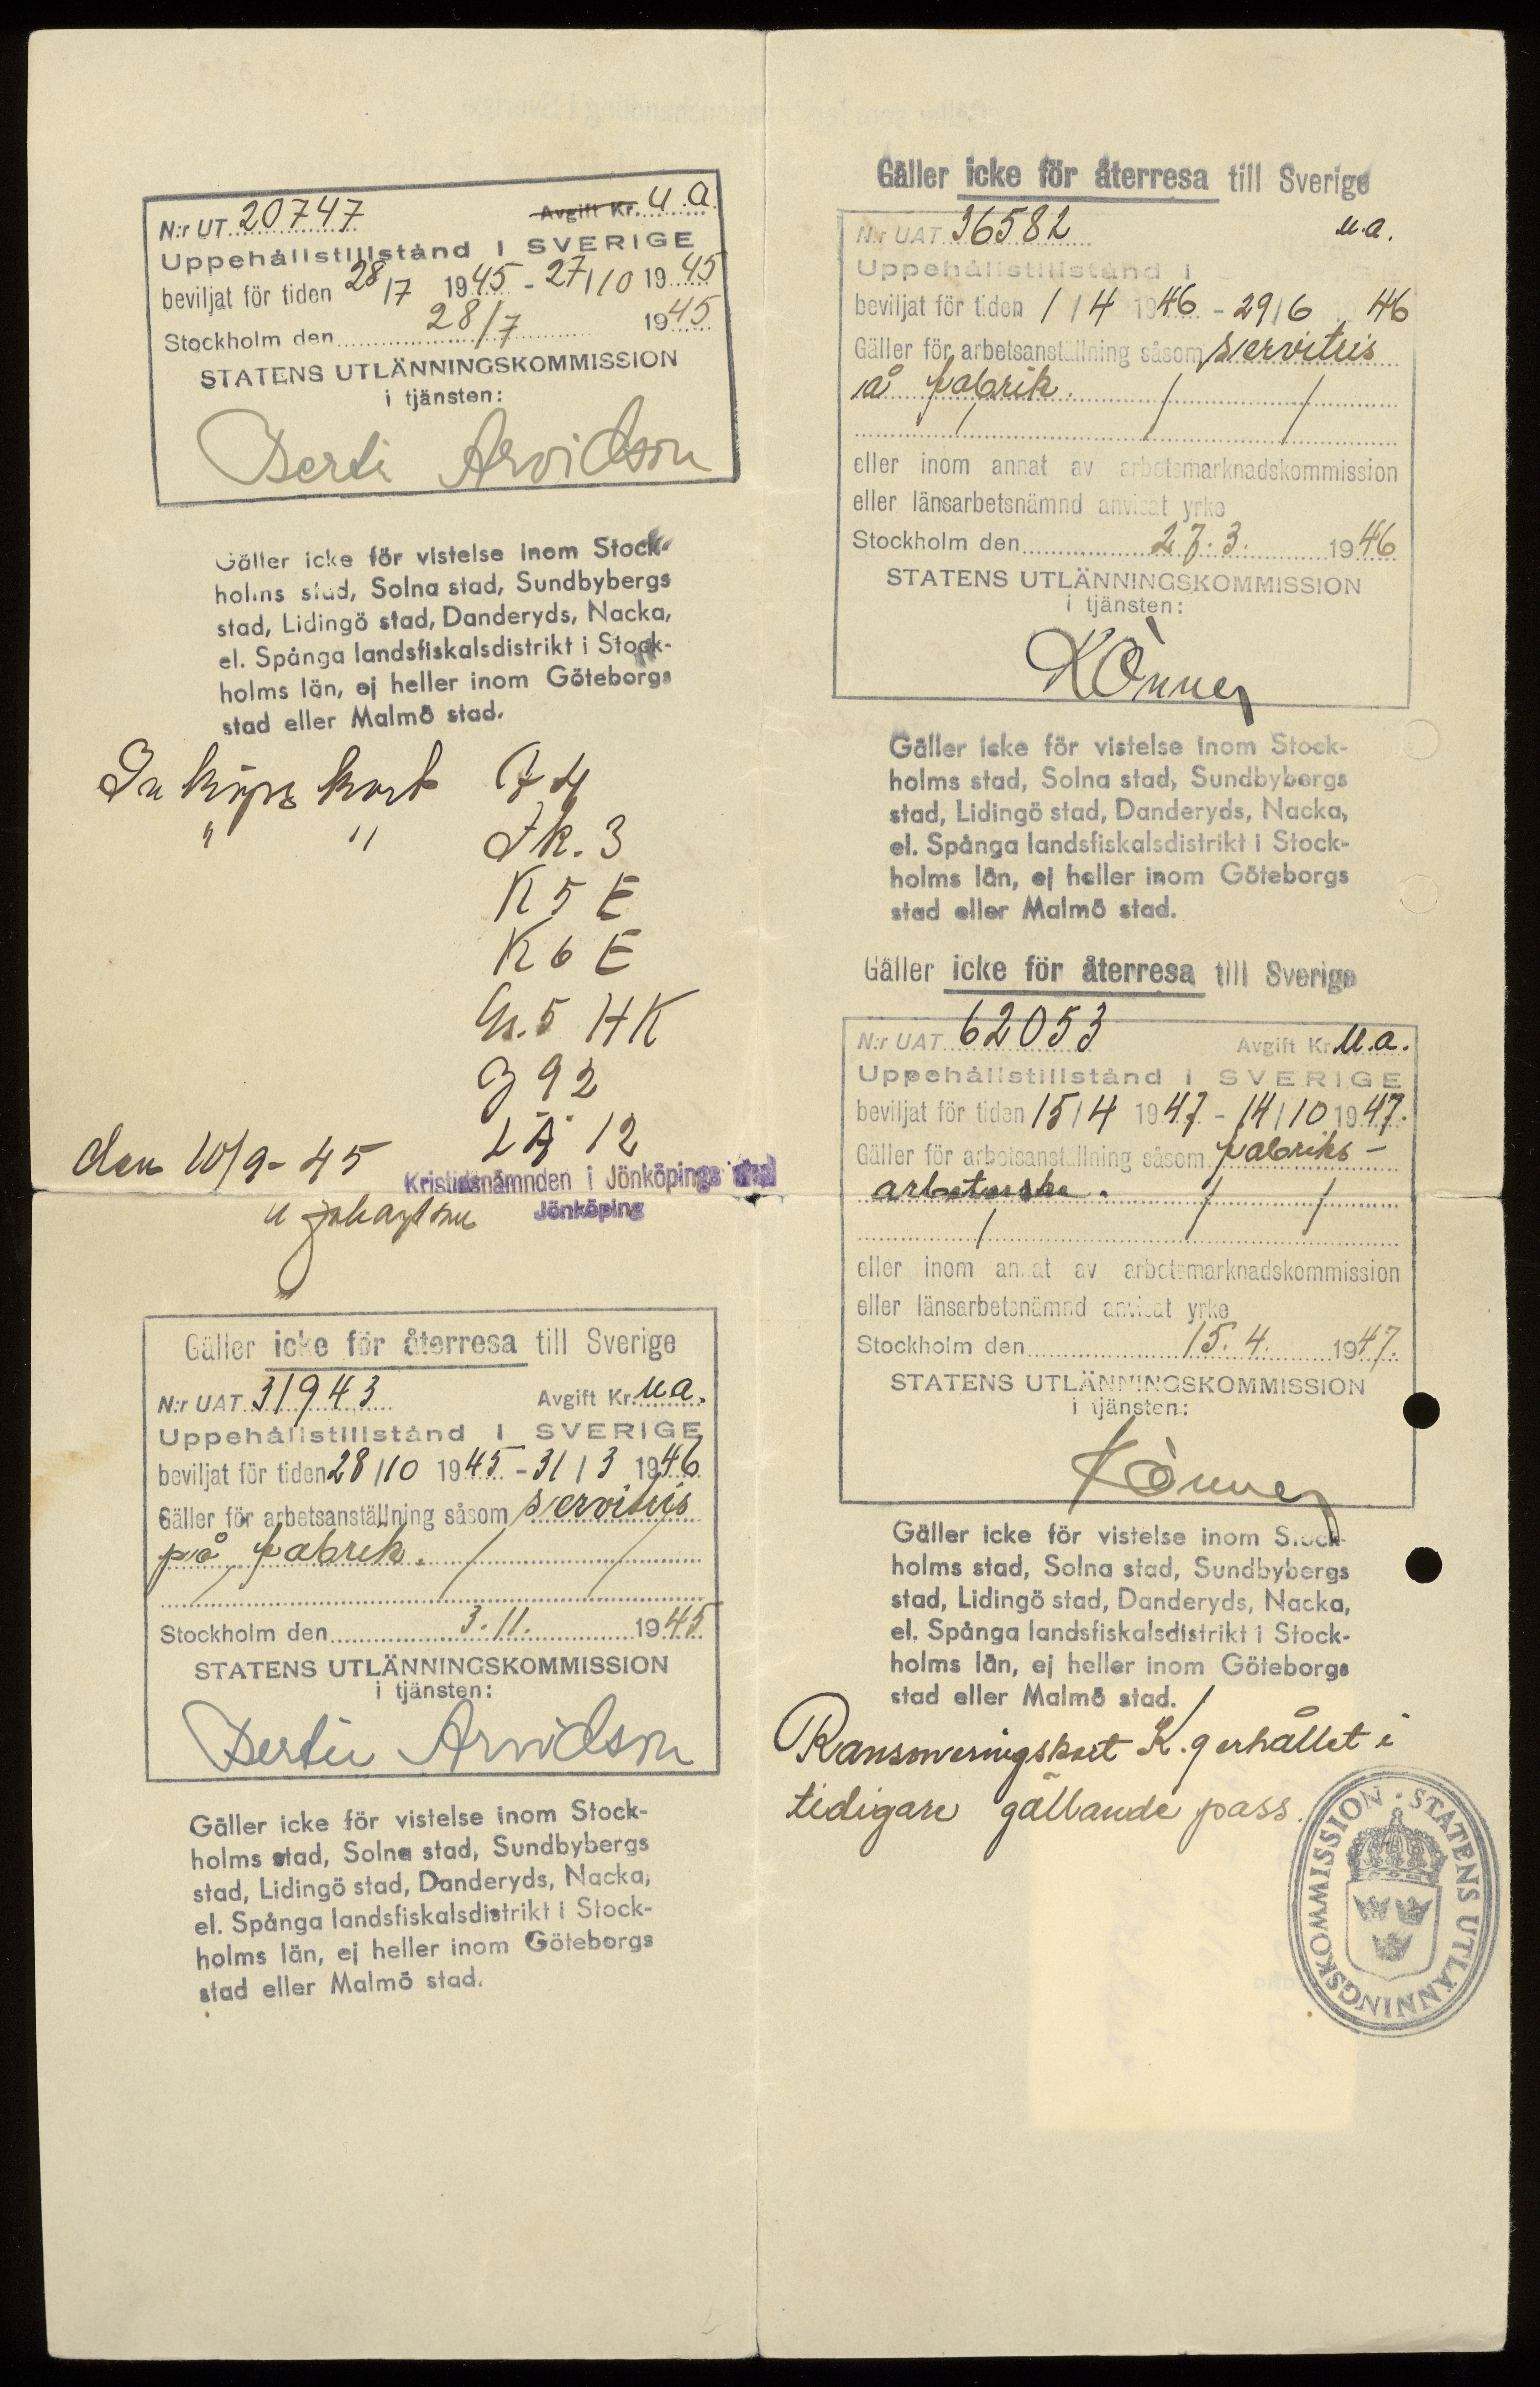 N:r UT 20747 Avgift Kr. u.a.
Uppehållstillstånd i SVERIGE
beviljat för tiden 28/7 1945 - 27/10 1945
Stockholm den 28/7 1945
STATENS UTLÄNNINGSKOMMISSION
i tjänsten:
Arvidson
Gäller icke för vistelse inom Stock-
holms stad, Solna stad, Sundbybergs
stad, Lidingö stad, Danderyds, Nacka,
el. Spånga landsfiskalsdistrikt i Stock-
holms län, ej heller inom Göteborgs
stad eller Malmö stad.
Inköpskort
" "
K 5 E
K 6 E
5 HK
92
LÄ 12
den 10/9-45
Kristidsnämnden i Jönköpings
Jönköping
Gäller icke för återresa till Sverige
N:r UAT 31943 Avgift Kr. u.a.
Uppehållstillstånd i SVERIGE
beviljat för tiden 28/10 1945 - 31/3 1946
Gäller för arbetsanställning såsom servitris
på fabrik.
Stockholm den 3.11. 1945
STATENS UTLÄNNINGSKOMMISSION
i tjänsten:
Arvidson
Gäller icke för vistelse inom Stock-
holms stad, Solna stad, Sundbybergs
stad, Lidingö stad, Danderyds, Nacka,
el. Spånga landsfiskalsdistrikt i Stock-
holms län, ej heller inom Göteborgs
stad eller Malmö stad.
Gäller icke för återresa till Sverige
N:r UAT 36582 u.a.
Uppehållstillstånd i
beviljat för tiden 1/4 1946 - 29/6 46
Gäller för arbetsanställning såsom servitris
å fabrik.
eller inom annat av arbetsmarknadskommission
eller länsarbetsnämnd anvisat yrke
Stockholm den 27.3. 1946
STATENS UTLÄNNINGSKOMMISSION
i tjänsten:
Gäller icke för vistelse inom Stock-
holms stad, Solna stad, Sundbybergs
stad, Lidingö stad, Danderyds, Nacka,
el. Spånga landsfiskalsdistrikt i Stock-
holms län, ej heller inom Göteborgs
stad eller Malmö stad.
Gäller icke för återresa till Sverige
N:r UAT 62053 Avgift Kr u.a.
Uppehållstillstånd i SVERIGE
beviljat för tiden 15/4 1947 - 14/10 1947.
Gäller för arbetsanställning såsom fabriks-
arbeterska.
eller inom annat av arbetsmarknadskommission
eller länsarbetsnämnd anvisat yrke
Stockholm den 15.4. 1947.
STATENS UTLÄNNINGSKOMMISSION
i tjänsten:
Gäller icke för vistelse inom Stock-
holms stad, Solna stad, Sundbybergs
stad, Lidingö stad, Danderyds, Nacka,
el. Spånga landsfiskalsdistrikt i Stock-
holms län, ej heller inom Göteborgs
stad eller Malmö stad.
Ransoneringskort K.9 erhållet i
tidigare gällande pass.
STATENS UTLÄNNINGSKOMMISSION